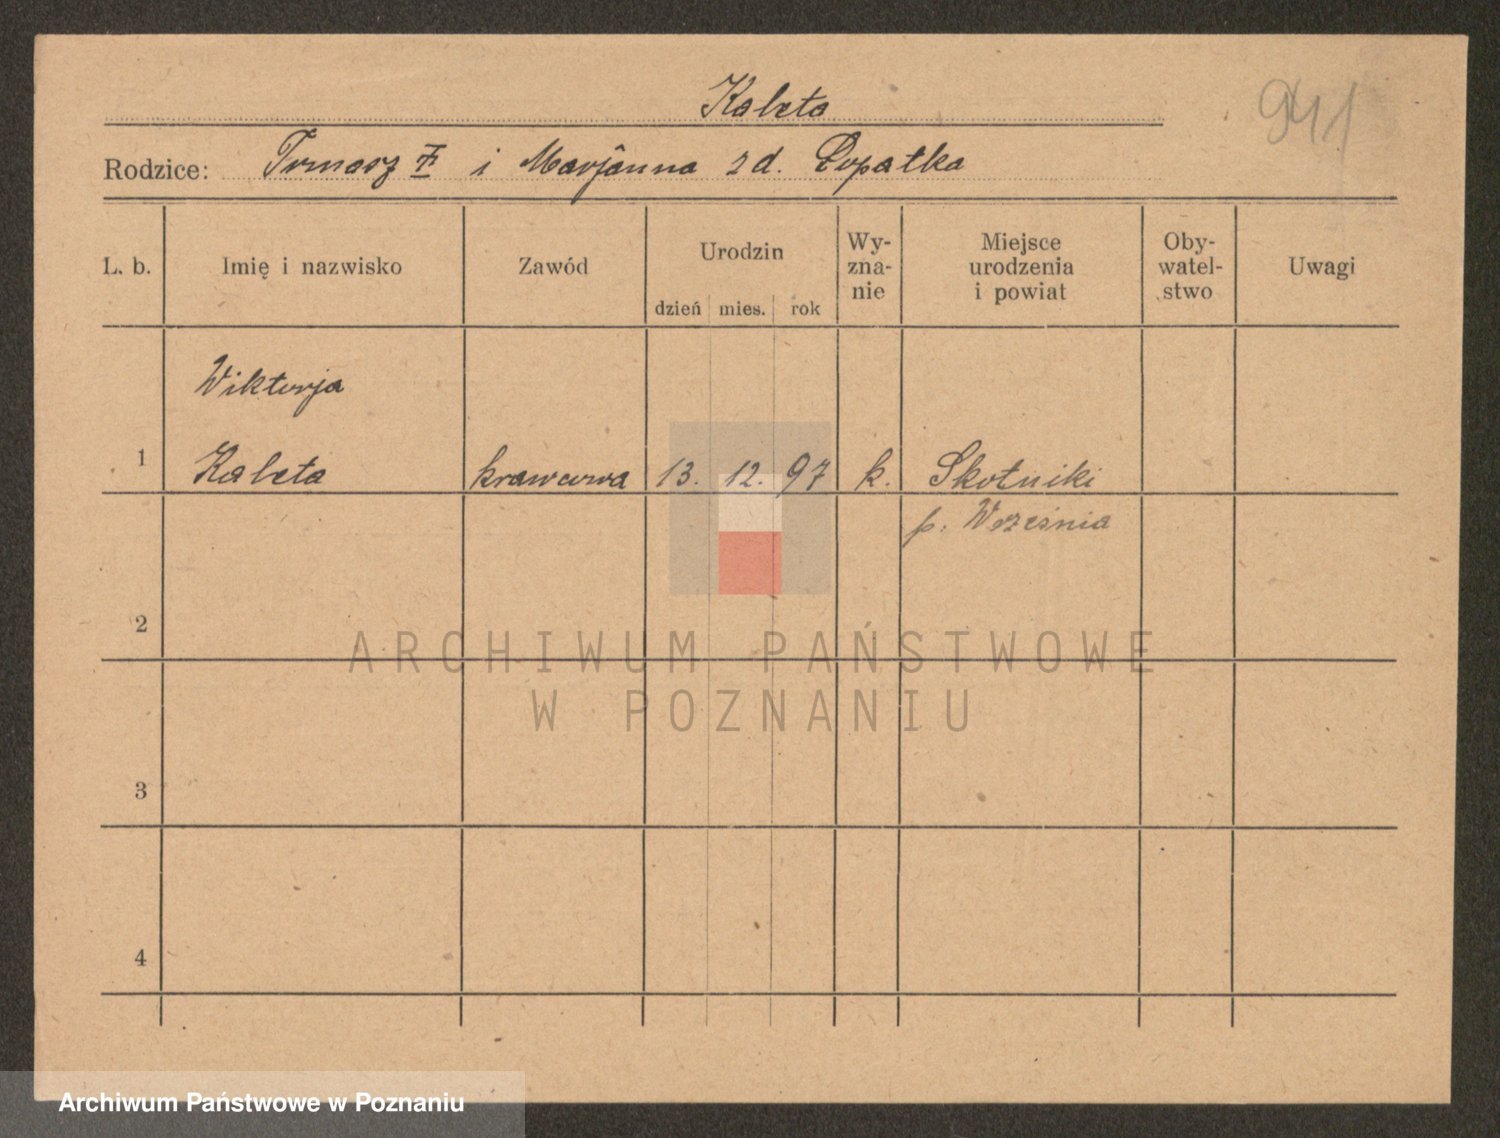 Kaleta
941
Rodzice: Tomasz i Marjanna z d. Łopatka
L. b. Imię i nazwisko Zawód Urodzin dzień mies. rok Wy-zna-nie Miejsce urodzenia i powiat Oby-watel-stwo Uwagi
Wiktorja
1 Kaleta krawcowa 13. 12. 97 k. Skotniki
p. Września
2
ARCHIWUM PAŃSTWOWE
W POZNANIU
3
4
Archiwum Państwowe w Poznaniu